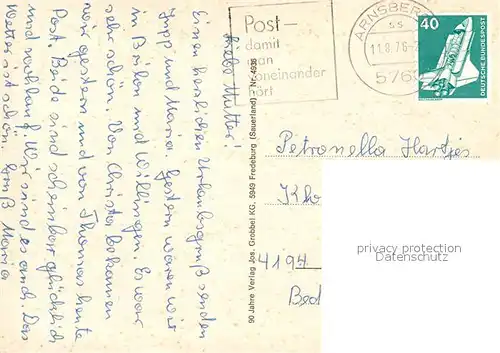 Liebe Mutter!
Einen herzlichen Urlaubsgruß senden
Jupp und Maria. Gestern waren wir
in Brilon und Willingen. Es war
sehr schön. Von Christa bekamen
wir gestern und von Thomas heute
Post. Beide sind scheinbar glücklich
und wohlauf. Wir sind es auch. Das
Wetter ist schön. Gruß Maria
90 Jahre Verlag Jos. Grobbel KG, 5949 Fredeburg (Sauerland) - Nr. 4938
Post-
damit
man
voneinander
hört
ARNSBERG
ss
11.8.76-2
5760
40
DEUTSCHE BUNDESPOST
Petronella Hartjes
4194
Bed
privacy protection
Datenschutz